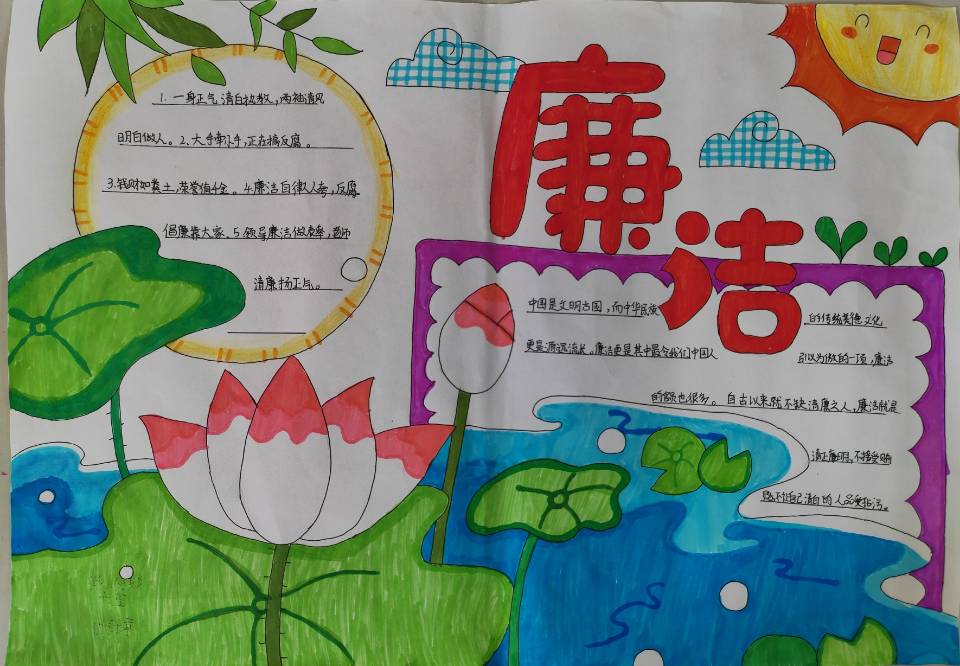 廉洁
1. 一身正气 清白执教，两袖清风
明白做人。2、大手牵小手，正在搞反腐。
3.钱财如粪土，荣誉值千金。4.廉洁自律人人夸，反腐
倡廉靠大家。5.领导廉洁做表率，老师
清廉扬正气。
中国是文明古国，而中华民族 的传统美德文化
更是源远流长。廉洁更是其中最令我们中国人 引以为傲的一项，廉洁
的颂也很多。自古以来就不缺清廉之人，廉洁就是
清正廉明，不接受贿
赂不让自己清白的人品受玷污。